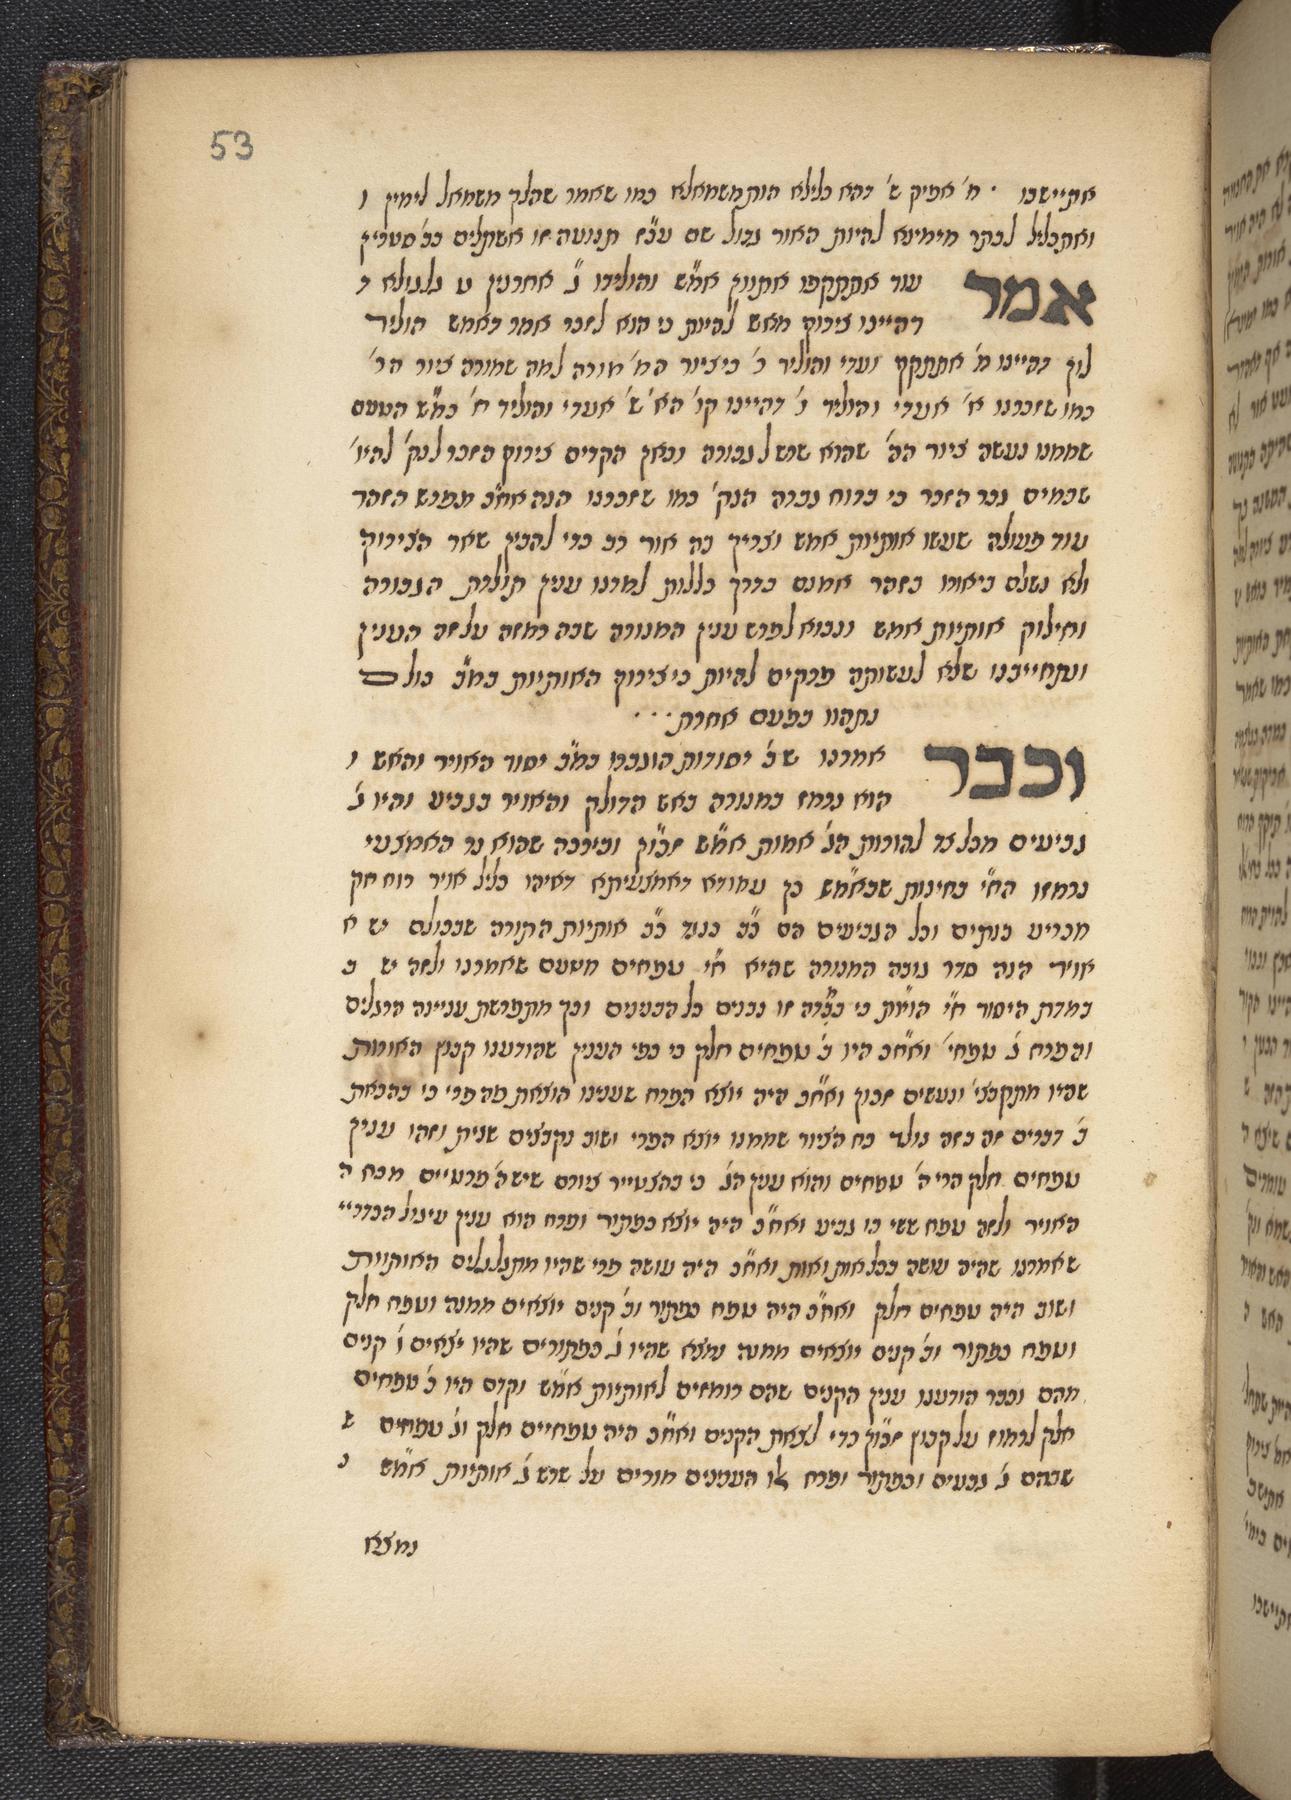 53
אתיישבו · ח׳ אפיק ש׳ דהא כלילא הות משמאלא כמו שאמר שהלך משמאל לימין ו
ואתכליל לבתר מימינא להיות האור נכלל שם ע״ז תנועה זו אשתלים בב׳ סטרין
אמר עוד אתתקפו אתוון אמ״ש והולידו ג׳ אחרנין ט גלגולא ד
דהיינו צירוף מאש להיות כי הוא לזכר אמר דאמש הוליד
לון דהיינו מ׳ אתתקף ועדי והוליד ר׳ כי ציור המ׳ מורה למה שמורה ציור הר׳
כמו שזכרנו א׳ אעדי והוליד ו׳ דהיינו קו׳ הא׳ ש׳ אעדי והוליד ח׳ כמ״ש הטעם
שממנו נעשה ציור הה׳ שהוא שרש לגבורה וכאן הקדים צירוף הזכר לנק׳ להיו׳
שבמים גבר הזכר כי ברוח גברה הנק׳ כמו שזכרנו הנה אח״כ תפרש הזהר
עוד פעולה שעשו אותיות אמש וצריך בה אור רב כדי להבין שאר הצירוף
ולא נשלם ביאורו בזהר אמנם בדרך כללות למדנו ענין תולדת הגבורה
וחילוק אותיות אמש ונבוא לפרש ענין המנורה שבה רמזה על זה הענין
ונתחייבנו שלא לעשותה פרקים להיות כי צירוף האותיות כמ״כ כולם
נתהוו בפעם אחרת · · ·
וכבר אמרנו שב׳ יסודות הוגברו כמ״כ יסוד האויר והאש ו
הוא נרמז במנורה באש הדולק והאויר בגביע והיו ג׳
גביעים מכל צד להורות הג׳ אמות אמ״ש זכ״ון ובירכה שהוא נר האמצעי
נרמזו הח״י בחינות שבא״מש כך עמודא דאמצעיתא דאיהו כליל אויר רוח חק
מכריע בנתים וכל הגביעים הם כ״ב כנגד כ״ב אותיות התורה שבכולם יש א
אויר הנה סדר גובה המנורה שהיא ח״י טפחים מטעם שאמרנו ולזה יש ב
במדת היסוד ח״י הויות כי בצורה זו נבנים כל הבנינים וכך מתפרשת עניינה הרגלים
והפרח ג׳ טפחי׳ ואח״כ היו ב׳ טפחים חלק כי כפי הענין שהודענו קבוץ האותות
שהיו מתקבצי׳ ונעשים זכון ואח״כ היה יוצא הפרח שענינו הוצאת מה פרי כי בהכאת
ב׳ דברים זה בזה נולד כח הציור שממנו יוצא הפרי ושוב נקבצים שנית וזהו ענין
טפחים חלק הרי ה׳ טפחים והוא ענין הג׳ כי בהצטייר צורם שיש ה׳ פרטיים מכח ה
האויר ולזה טפח ששי בו גביע ואח״כ היה יוצא כפתור ופרח הוא ענין עיגול הכדריי
שאמרנו שהיה עושה בכל אות ואות ואח״כ היה עושה פרי שהיו מתגלגלים האותיות
ושוב היה טפחים חלק ואח״כ היה טפח כפתור וב׳ קנים יוצאים ממנה וטפח חלק
וטפח כפתור וב׳ קנים יוצאים ממנה נמצא שהיו ג׳ כפתורים שהיו יצאים ו׳ קנים
מהם וכבר הודענו ענין הקנים שהם רומזים לאותיות אמ״ש וקדם היו ב׳ טפחים
חלק לרמוז על קבוץ זכ״ון כדי לצאת הקנים ואח״כ היה טפחיים חלק וג׳ טפחים ש
שבהם ג׳ גבעים וכפתור ופרח אלו הענינים מורים על שרש ג׳ אותיות אמ״ש נ
נמצא